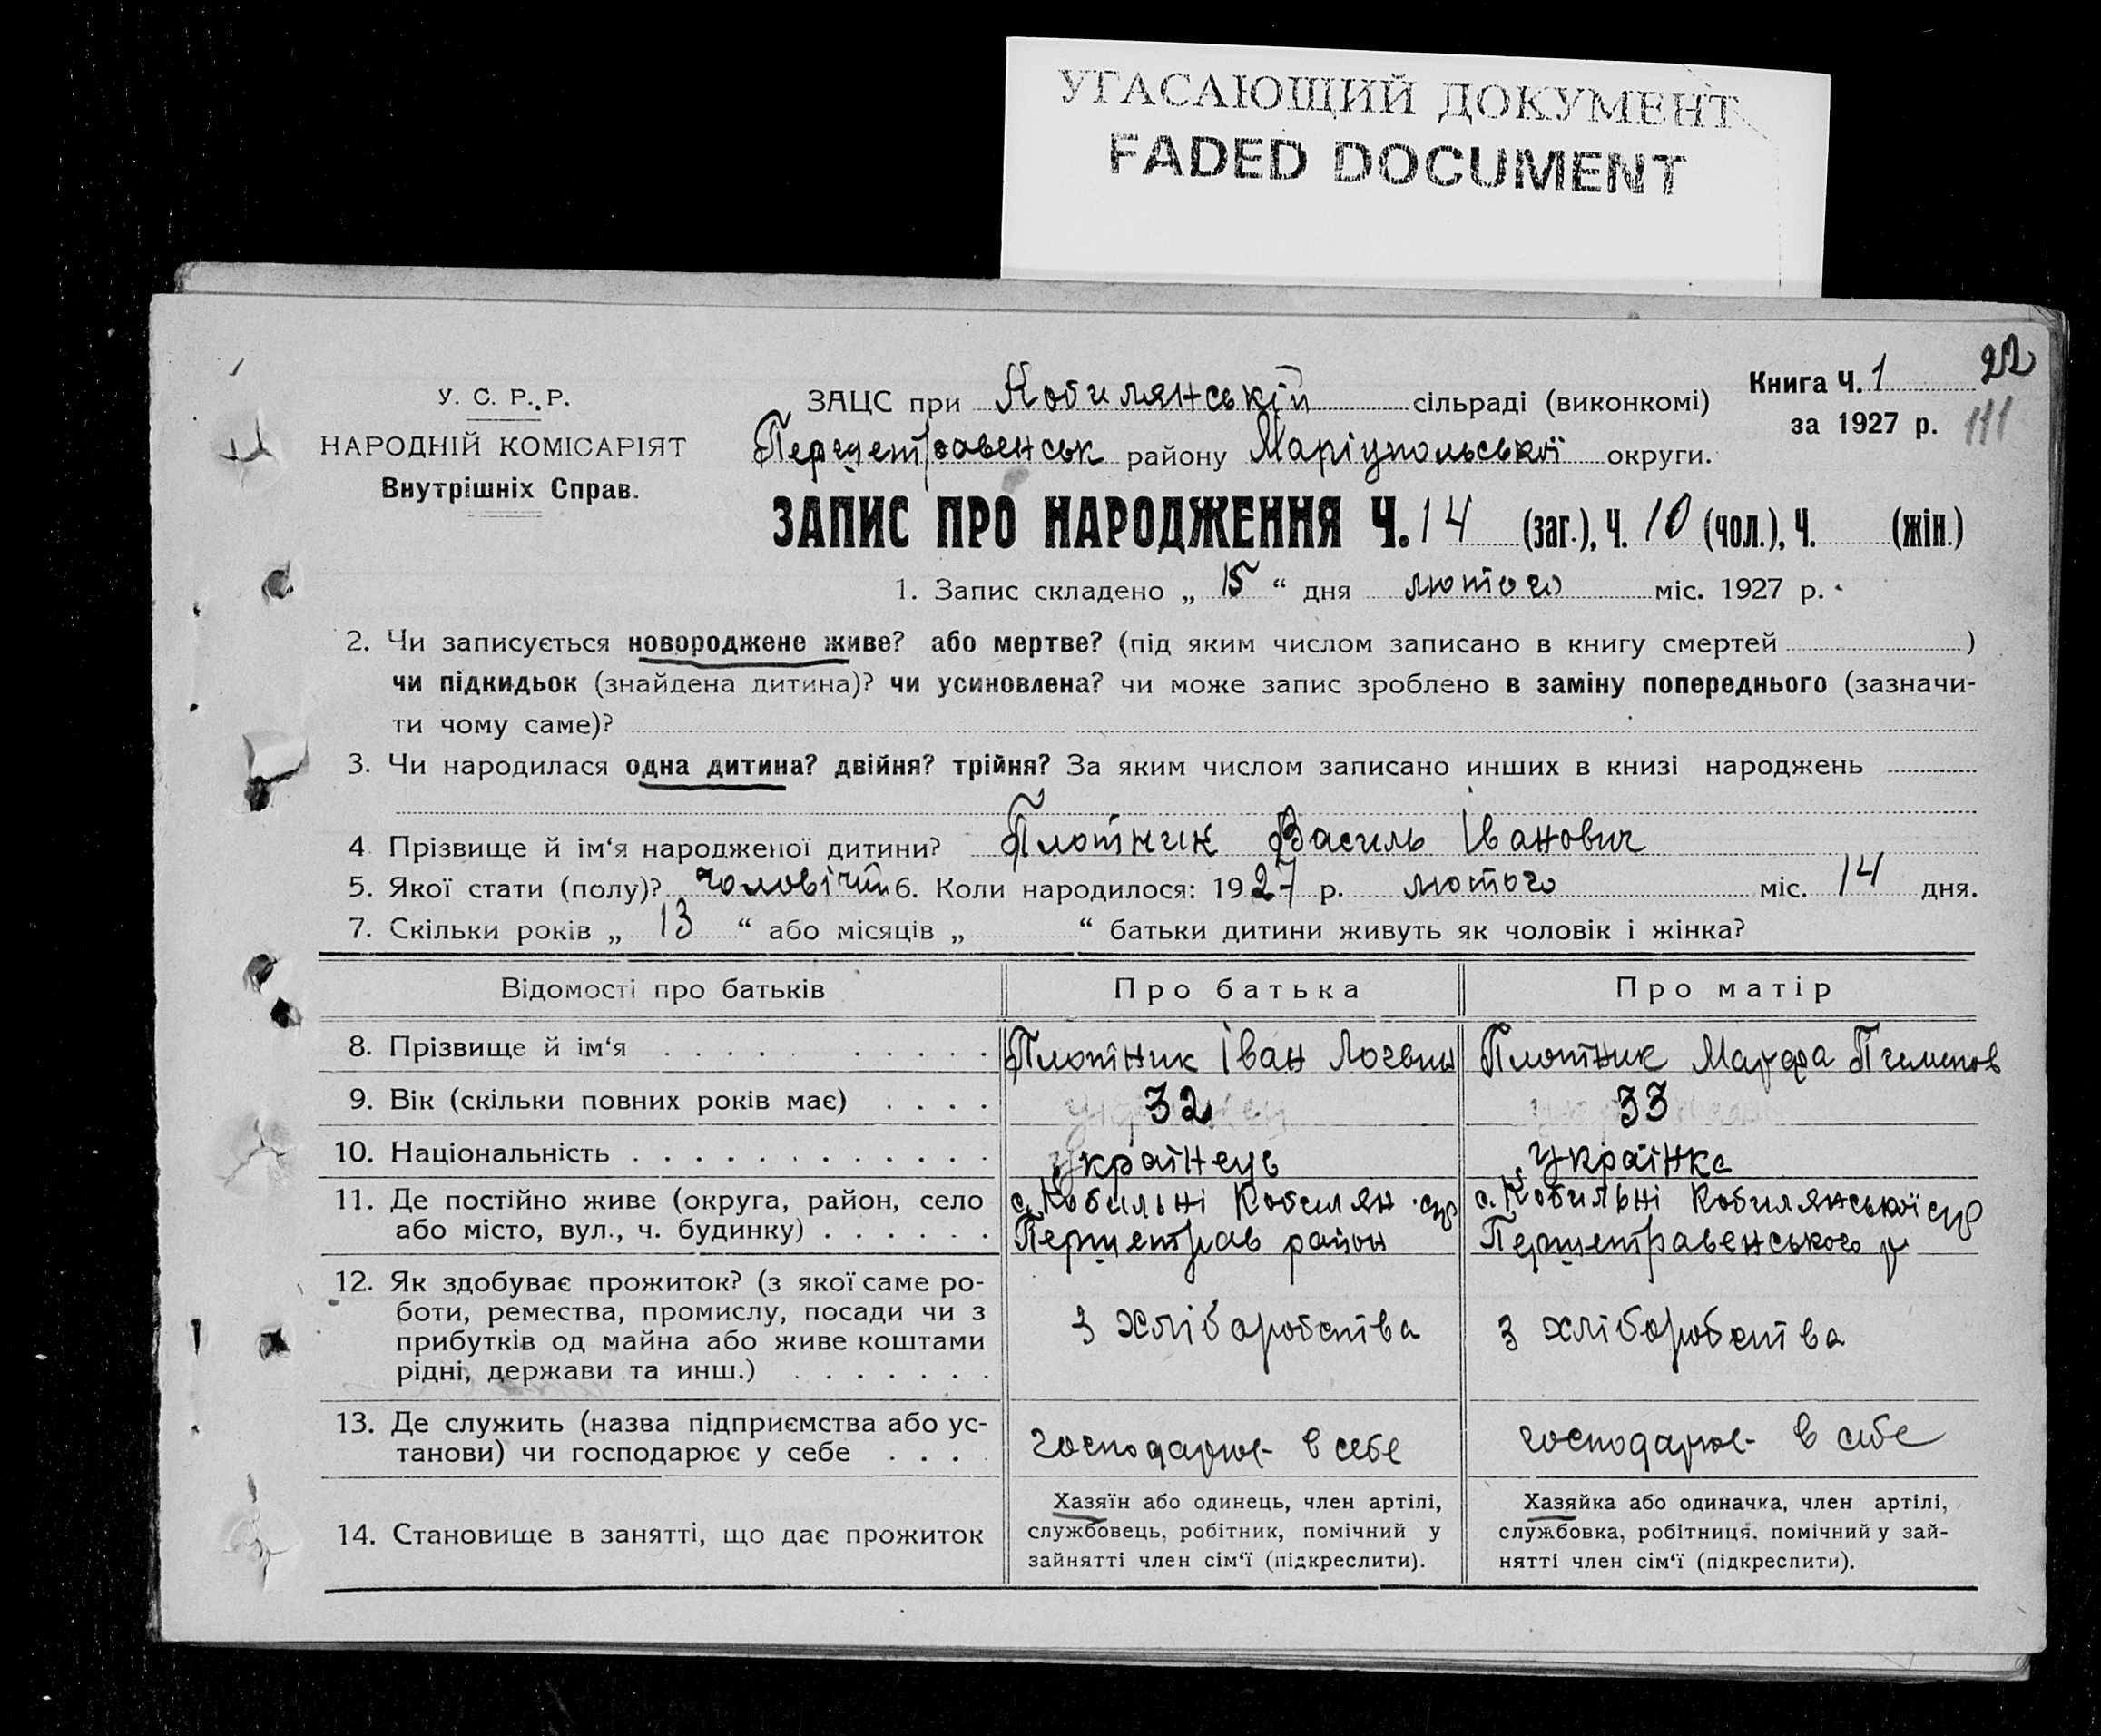 УГАСАЮЩИЙ ДОКУМЕНТ
FADED DOCUMENT
22
Книга Ч. 1
за 1927 р. 111
У. С. Р. Р.
НАРОДНІЙ КОМІСАРІЯТ
Внутрішніх Справ.
ЗАЦС при Кобилянській сільраді (виконкомі)
району Маріупольської округи.
ЗАПИС ПРО НАРОДЖЕННЯ Ч. 14 (заг.), Ч. 10 (чол.), Ч. (жін.)
1. Запис складено „ 15 “ дня лютого міс. 1927 р.
2. Чи записується новороджене живе? або мертве? (під яким числом записано в книгу смертей )
чи підкидьок (знайдена дитина)? чи усиновлена? чи може запис зроблено в заміну попереднього (зазначи-
ти чому саме)?
3. Чи народилася одна дитина? двійня? трійня? За яким числом записано инших в книзі народжень
4 Прізвище й ім‘я народженої дитини? Плотник Василь Іванович
5. Якої стати (полу)? чоловічий 6. Коли народилося: 1927 р. лютого міс. 14 дня.
7. Скільки років „ 13 “ або місяців „ “ батьки дитини живуть як чоловік і жінка?
Відомості про батьків Про батька Про матір
8. Прізвище й ім‘я Плотник Іван Плотник Марфа
9. Вік (скільки повних років має) 32 33
10. Національність українець українка
11. Де постійно живе (округа, район, село с. Кобильні Кобилян с. Кобильні Кобилянської
або місто, вул., ч. будинку) район
12. Як здобуває прожиток? (з якої саме ро-
боти, ремества, промислу, посади чи з з хліборобства з хліборобства
прибутків од майна або живе коштами
рідні, держави та инш.)
13. Де служить (назва підприємства або ус-
танови) чи господарює у себе господарює в себе господарює в себе
14. Становище в занятті, що дає прожиток
Хазяїн або одинець, член артілі,
службовець, робітник, помічний у
зайнятті член сім‘ї (підкреслити).
Хазяйка або одиначка, член артілі,
службовка, робітниця, помічний у зай-
нятті член сім‘ї (підкреслити).